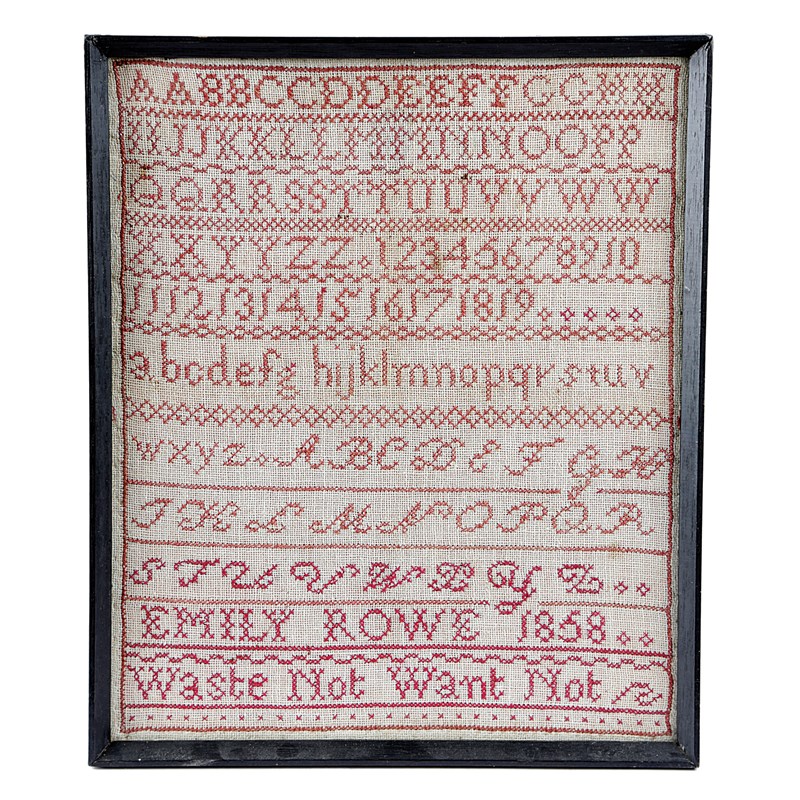 AABBCCDDEEFFGGHH
IIJJKKLLMMNNOOPP
QQRRSSTTUUVVWW
XXYYZZ.12345678910
111213141516171819.....
abcdefg hijklmnopqrstuv
wxyz..ABCDEFGH
IKLMNOPQR
STUVWXYZ..
EMILY ROWE 1858..
Waste Not Want Not